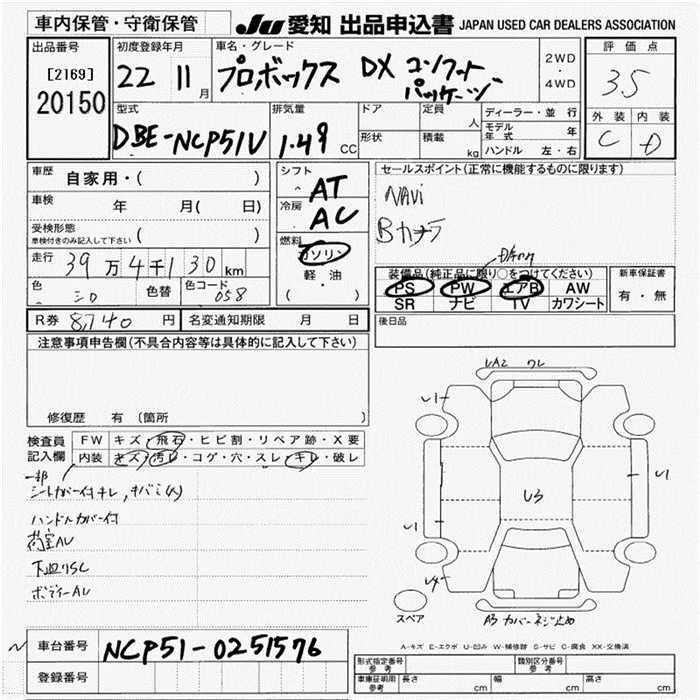 車内保管・守衛保管
JU 愛知 出品申込書 JAPAN USED CAR DEALERS ASSOCIATION
出品番号
[2169]
20150
初度登録年月
22 11月
車名・グレード
プロボックス DX コンフォート
パッケージ
2WD
・
4WD
評価点
3.5
外装 内装
C D
型式
DBE-NCP51V
排気量
1.49 CC
ドア
形状
定員 人
積載 kg
ディーラー・並行
モデル年式 年
ハンドル 左・右
車歴
自家用・( )
車検
年 月( 日)
受検形態
車検付きのみ記入して下さい ( )
走行 39万4千130km
色 シロ 色替 色コード 058
R券 8,740円 名変通知期限 月 日
シフト
AT
冷房
AC
燃料
ガソリン
軽・油
( )
セールスポイント(正常に機能するものに限ります)
NAVi
Bカメラ
装備品(純正品に限り○をつけてください)
PS PW エアB AW
SR ナビ TV カワシート
新車保証書
有・無
後日品
注意事項申告欄(不具合内容等は具体的に記入して下さい)
修復歴 有 (箇所
検査員
記入欄
FW キズ・飛石・ヒビ割・リペア跡・X要
内装 キズ・汚レ・コゲ・穴・スレ・キレ・破レ
一部
シートカバー付キレ,
ハンドルカバー付
荷室AU
下廻りSC
ボデーAU
UA2 ワレ
U1
U1
U1
U3
U4
A3 カバーネジ止め
スペア
A-キズ E-エクボ U-凹み W-補修跡 S-サビ C-腐食 XX-交換済
車台番号 NCP51-0251576
登録番号
形式指定番号
参考
類別区分番号
参考
車庫証明用
参考
長さ cm 幅 cm 高さ cm